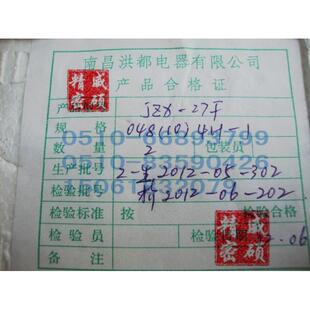 南昌洪都电器有限公司
产品合格证
威硕精密
JZX-27F
规格 048(10)4H-1
数量 2 包装员
生产批号 2-生2012-05-302
检验批号 新2012-06-202
检验标准 按 检验合格
检验员 检验日期 12.06
威硕精密
0510-83590426